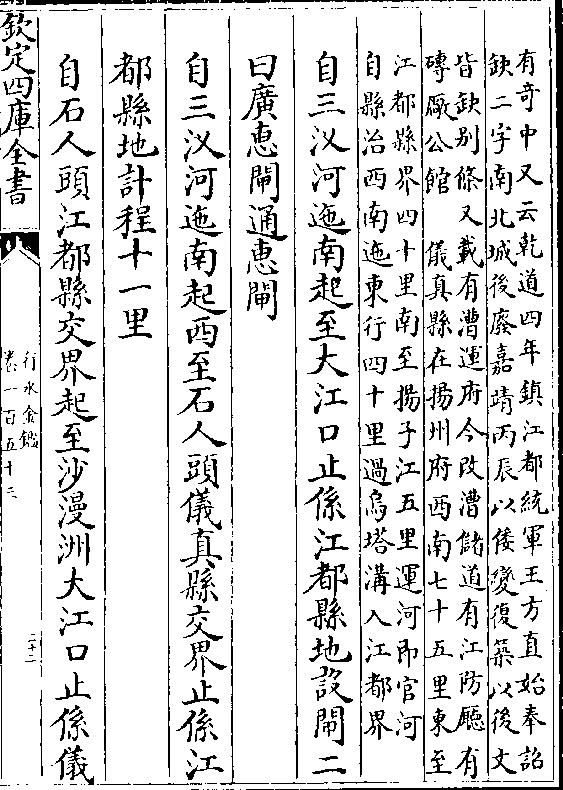 有奇中又云乾道四年鎮江都統軍王方直始奉詔
鈌二字南北城後廢嘉靖丙辰以倭變復築以後文
皆鈌别條又載有漕運府今改漕儲道有江防廳有
磚厰公館　儀真縣在揚州府西南七十五里東至
江都縣界四十里南至揚子江五里運河即官河
自縣治西南迤東行四十里過烏塔溝入江都界
自三汊河迤南起至大江口止係江都縣地設閘二
曰廣惠閘通惠閘
自三汊河迤南起西至石人頭儀真縣交界止係江
都縣地計程十一里
自石人頭江都縣交界起至沙漫洲大江口止係儀
欽定四庫全書
行水金鑑
卷一百五十三
二十二